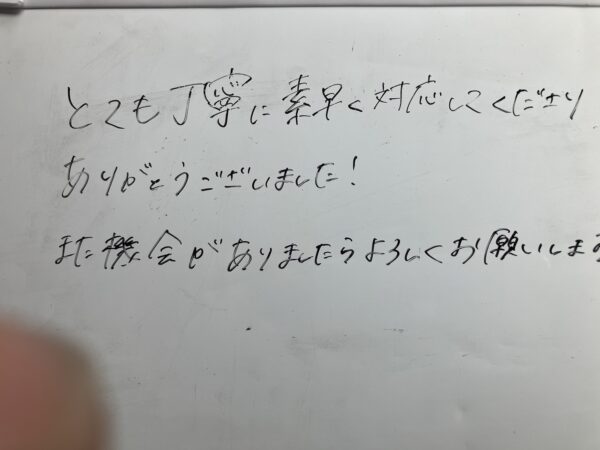 とても丁寧に素早く対応してくださり
ありがとうございました!
また機会がありましたらよろしくお願いします